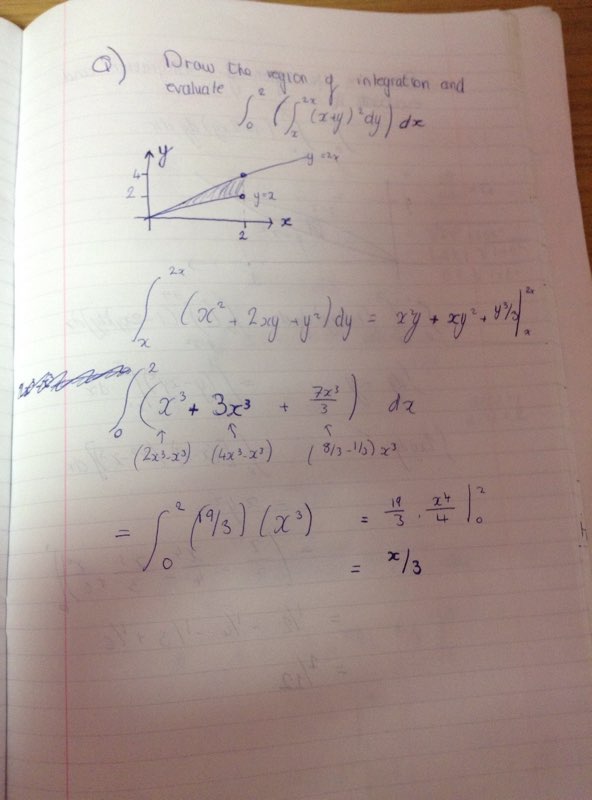 Q) Draw the region of integration and
evaluate ∫₀² (∫ₓ²ˣ (x+y)² dy) dx
y
4
y=2x
2
y=x
x
2
∫ₓ²ˣ (x² + 2xy + y²) dy = x²y + xy² + y³/3 |ₓ²ˣ
∫₀² (x³ + 3x³ + 7x³/3) dx
↑ ↑ ↑
(2x³-x³) (4x³-x³) (8/3-1/3) x³
= ∫₀² (19/3) (x³) = 19/3 · x⁴/4 |₀²
= x/3